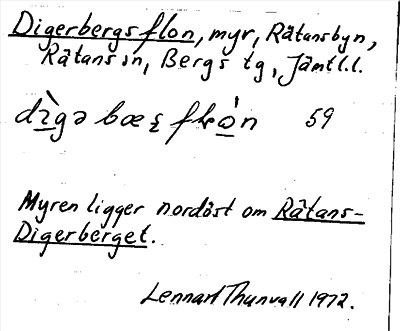 Digerbergsflon, myr, Rätansbyn,
Rätans sn, Bergs tg, Jämtl.l.
59
Myren ligger nordöst om Rätans-
Digerberget.
Lennart Thunvall 1972.